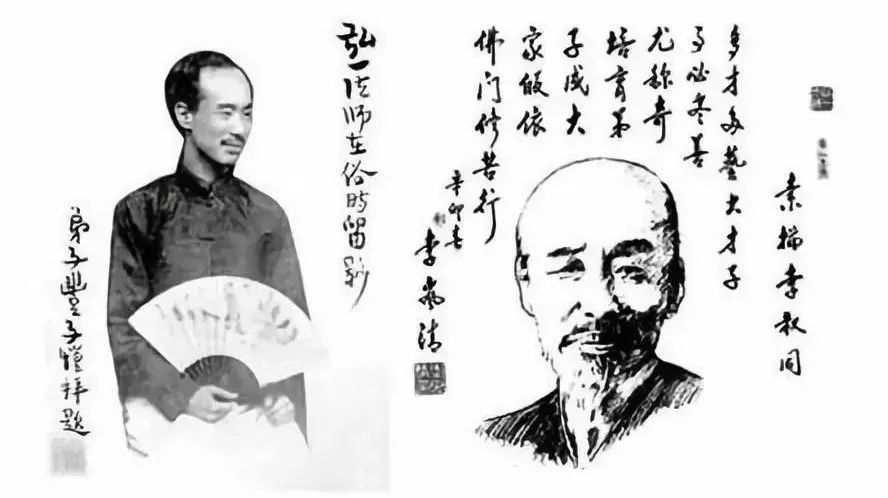 弘一法师在俗时留影
弟子豐子愷拜題
素描李叔同
多才多藝大才子
事必尽善
尤称奇
培育弟
子成大
家皈依
佛门修苦行
辛卯春
李岚清